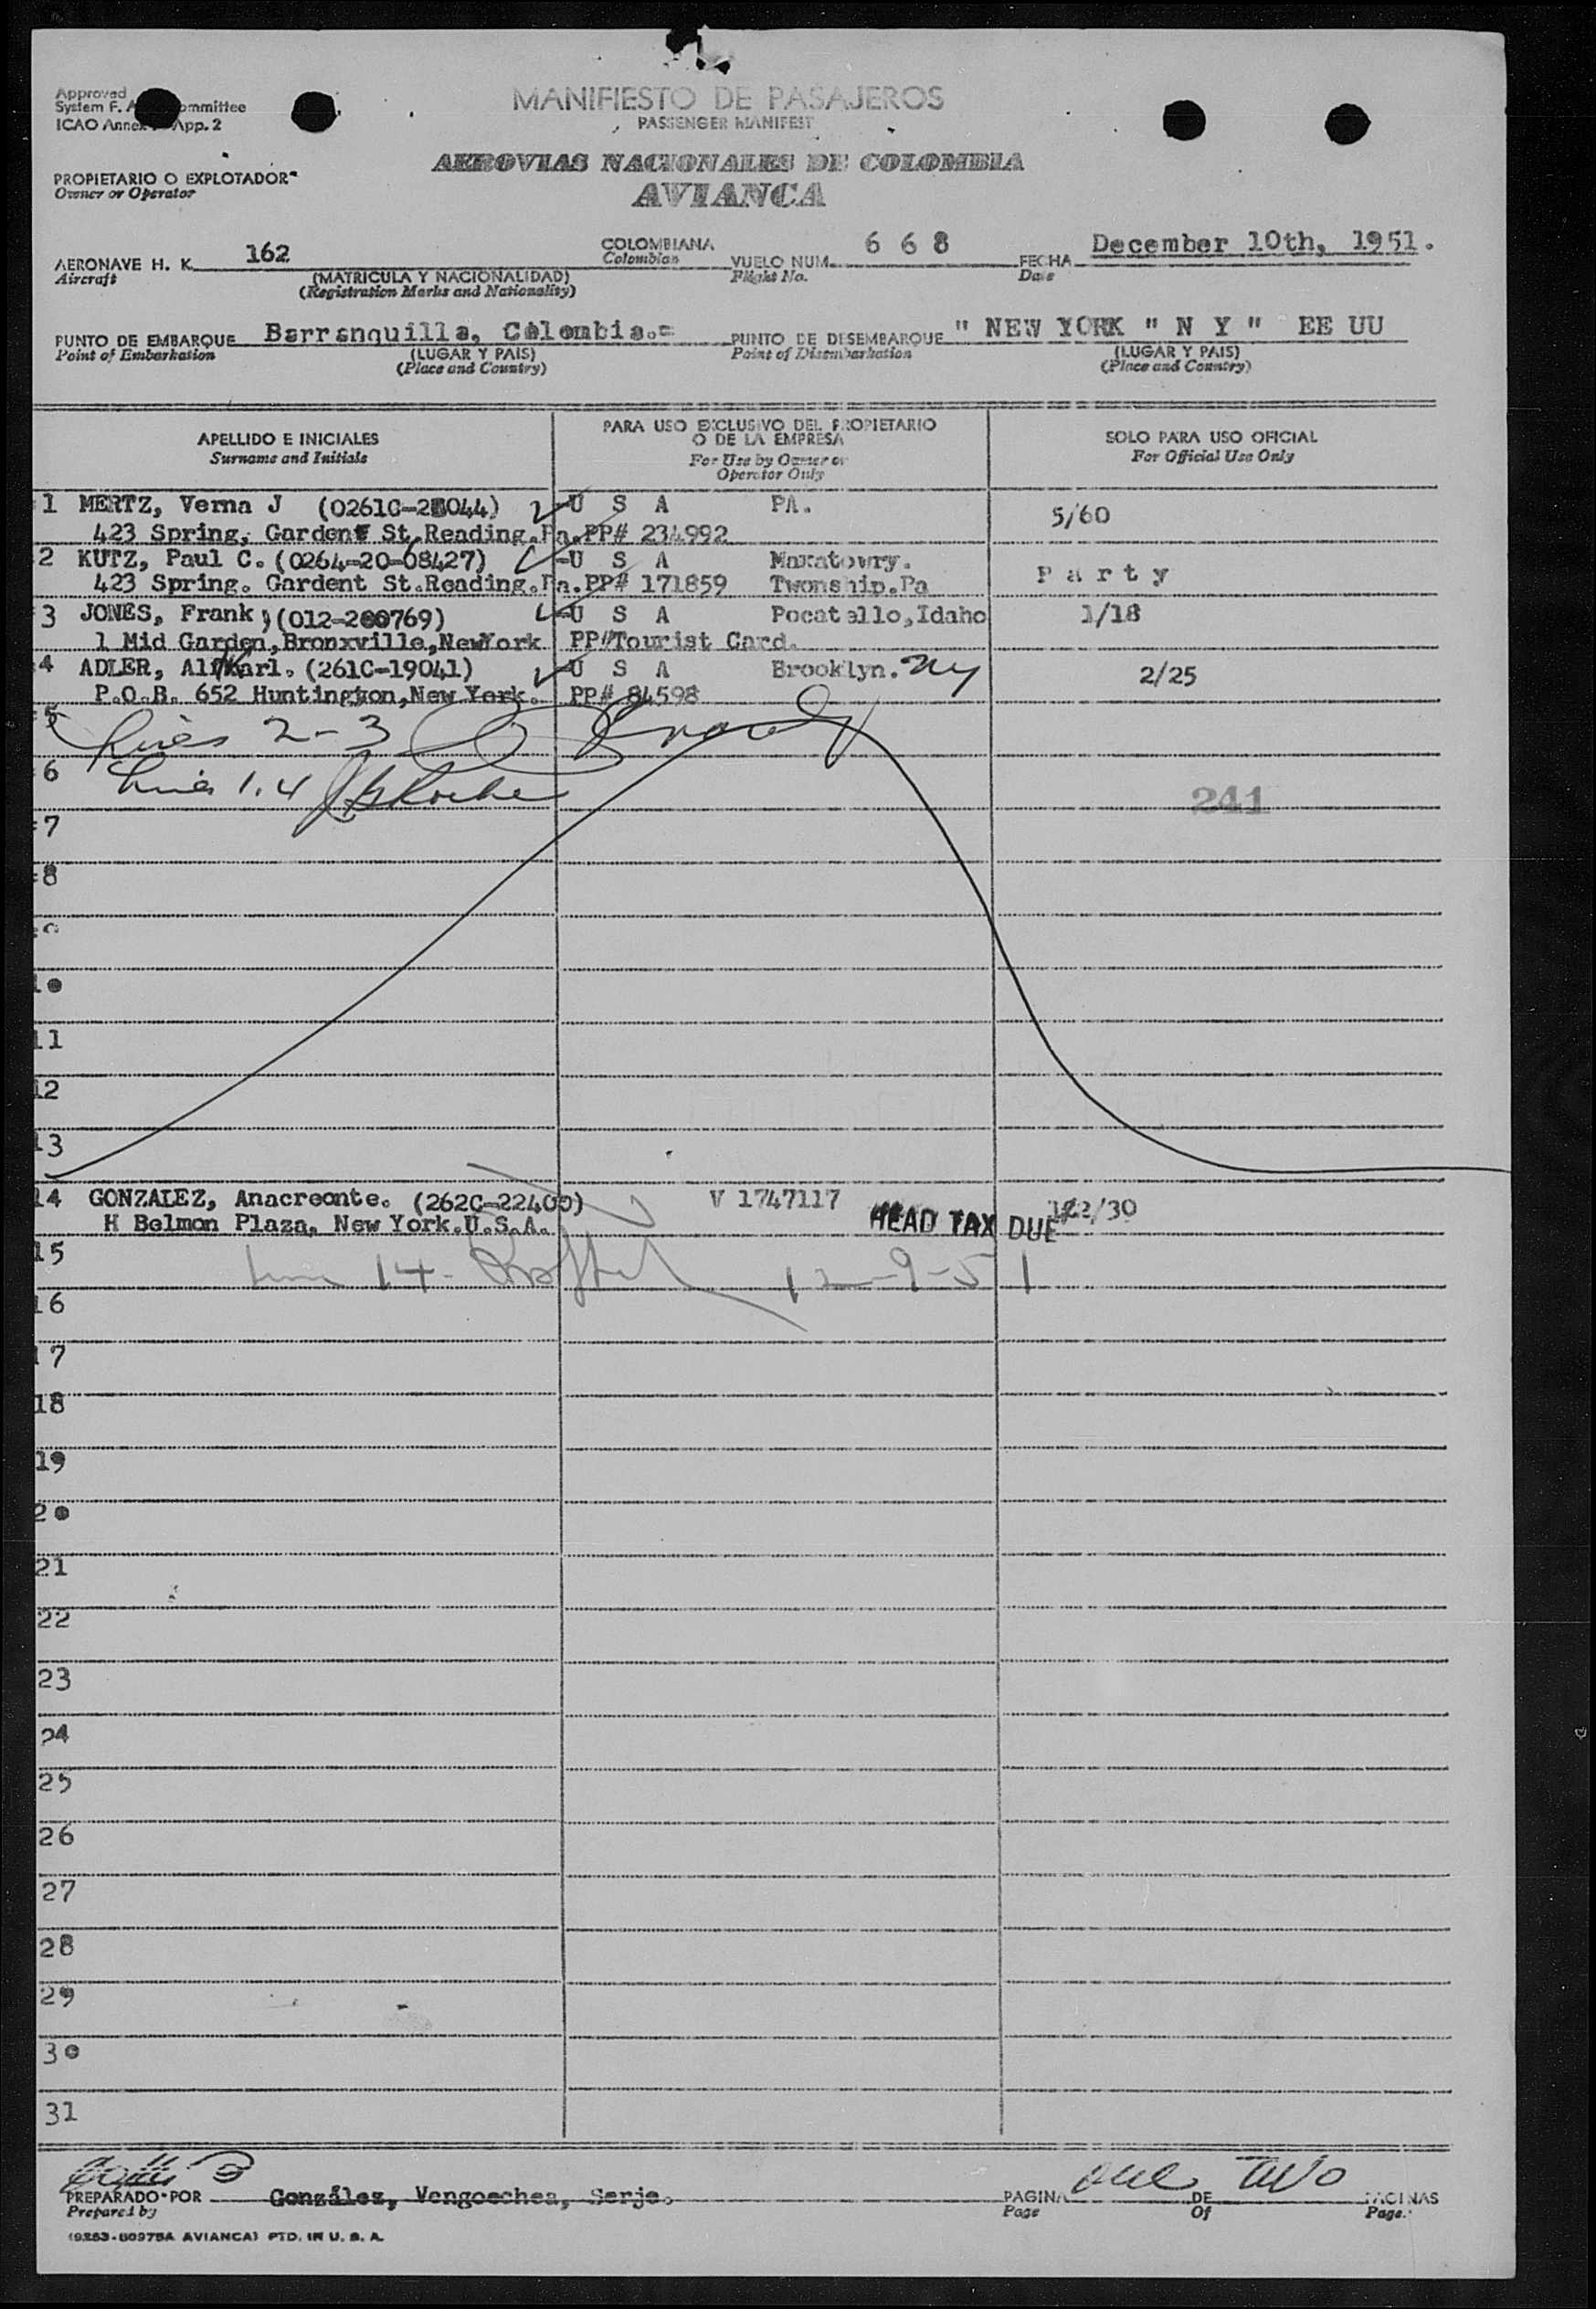 Approved
System F. A ommittee
ICAO Annex App. 2
MANIFIESTO DE PASAJEROS
PASSENGER MANIFEST
AEROVIAS NACIONALES DE COLOMBIA
AVIANCA
PROPIETARIO O EXPLOTADOR
Owner or Operator
AERONAVE H. K. 162 COLOMBIANA VUELO NUM. 6 6 8 FECHA December 10th, 1951.
Aircraft (MATRICULA Y NACIONALIDAD) Colombian Flight No. Date
(Registration Marks and Nationality)
PUNTO DE EMBARQUE Barranquilla, Colombia.= PUNTO DE DESEMBARQUE " NEW YORK " N Y " EE UU
Point of Embarkation (LUGAR Y PAIS) Point of Disembarkation (LUGAR Y PAIS)
(Place and Country) (Place and Country)
APELLIDO E INICIALES PARA USO EXCLUSIVO DEL PROPIETARIO O DE LA EMPRESA SOLO PARA USO OFICIAL
Surname and Initials For Use by Owner or Operator Only For Official Use Only
1 MERTZ, Verna J U S A PA. 5/60
423 Spring, Garden St.Reading.Pa.PP# 234992
2 KUTZ, Paul C. (0264-20-68427) U S A Maxatowry. Party
423 Spring. Gardent St.Reading.Pa.PP# 171859 Twonship.Pa
3 JONES, Frank U S A Pocatello,Idaho 1/18
1 Mid Garden,Bronxville,NewYork PP#Tourist Card.
4 ADLER, Alf Karl. (261C-19041) U S A Brooklyn. NY 2/25
P.O.B. 652 Huntington,New York. PP# 84598
5 Lines 2-3
6 Lines 1.4
241
7
8
9
10
11
12
13
14 GONZALEZ, Anacreonte. (262C-22400) V 1747117 HEAD TAX DUE
H Belmon Plaza, New York.U.S.A.
15 Line 14 12-9-51
16
17
18
19
20
21
22
23
24
25
26
27
28
29
30
31
PREPARADO POR González, Vengoechea, Serje. PAGINA one DE two PAGINAS
Prepared by Page Of Page.
(9263-B0975A AVIANCA) PTD. IN U. S. A.